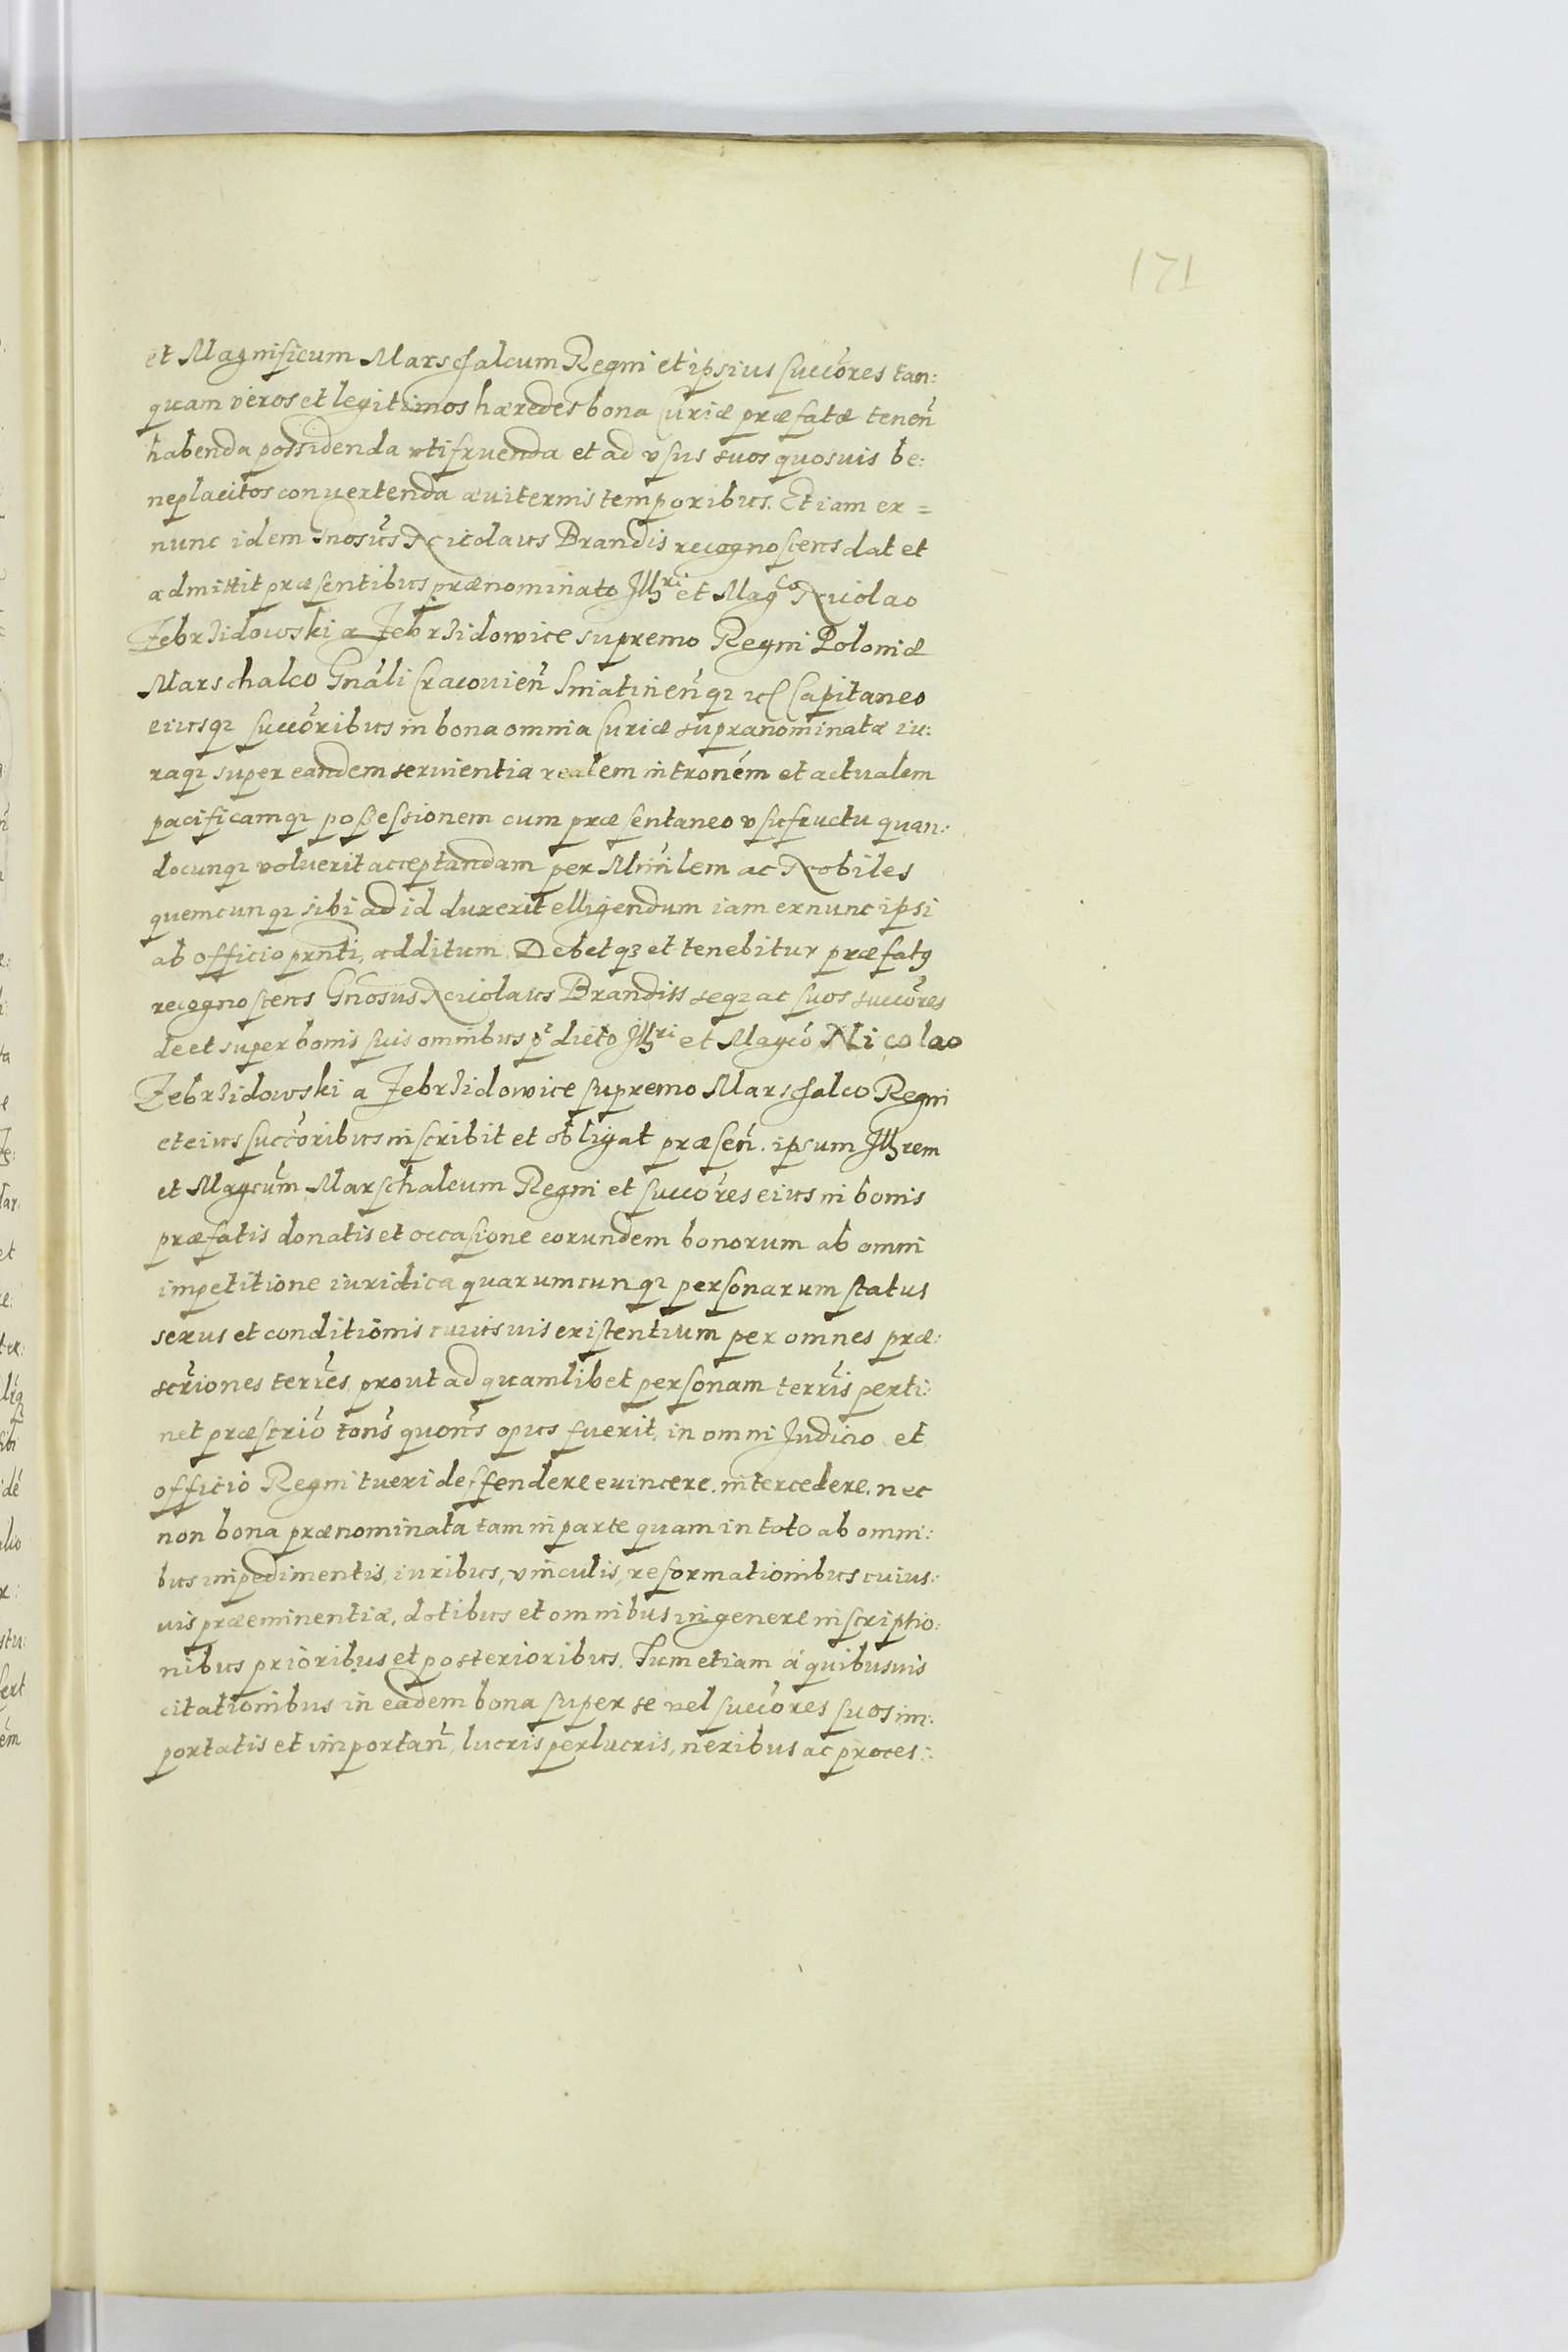 171
et Magnificum Marschalcum Regni et ipsius succōres tan:
quam veros et legitimos hæredes bona Curiæ præfatæ tenen̄
habenda possidenda utifruenda et ad usus suos quosuis be:
neplacitos conuertenda æuiternis temporibus. Et iam ex=
nunc idem Gnosūs Nicolaus Brandis recognoscens dat et
admittit præsentibus prænominato Jllri et Magco Nicolao
Zebrzidowski a Zebrzidowice supremo Regni Poloniæ
Marschalco Gnāli Cracouien̄ Sniatinen̄q; etc Capitaneo
eiusq; succōribus in bona omnia Curiæ supranominatæ iu:
raq; super eandem seruientia realem intronēm et actualem
pacificamq; possessionem cum præsentaneo usufructu quan:
docunq; voluerit acceptandam per Minīlem ac Nobiles
quemcunq; sibi ad id duxerit elligendum iam exnunc ipsi
ab officio prnti, additum. Debetq; et tenebitur præfatus
recognoscens Gnosus Nicolaus Brandiss seq; ac suos succōres
de et super bonis suis omnibus p̄dicto Jllri et Magcō Nicolao
Zebrzidowski a Zebrzidowice supremo Marschalco Regni
et eius succōribus inscribit et obligat præsen̄. ipsum Jllrem
et Magcūm Marschalcum Regni et succōres eius in bonis
præfatis donatis et occasione eorundem bonorum ab omni
impetitione iuridica quarumcunq; personarum status
sexus et conditionis cuiusuis existentium per omnes præ:
scrīones terrēs prout ad quamlibet personam terrīs perti:
net præscriō ton̄s quon̄s opus fuerit, in omni Judicio et
officio Regni tueri deffendere euincere. intercedere. nec
non bona prænominata tam in parte quam in toto ab omni:
bus impedimentis, iuribus, vinculis, reformationibus cuius:
uis præeminentiæ, dotibus et omnibus in genere inscriptio:
nibus prioribus et posterioribus. Tum etiam á quibusuis
citationibus in eadem bona super se vel succōres suos im:
portatis et importan̄, lucris perlucris, nexibus ac proces: